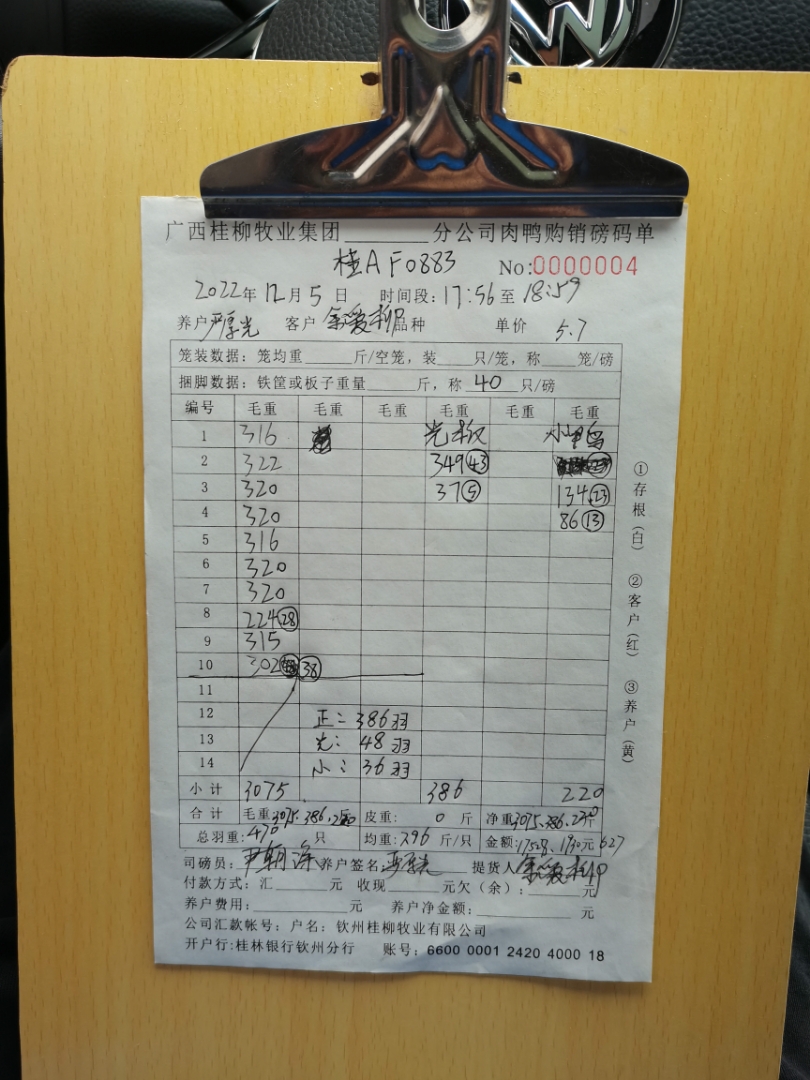 广西桂柳牧业集团________分公司肉鸭购销磅码单
桂A F0883 No:0000004
2022年12月5日 时间段:17:56至18:59
养户 客户 品种 单价 5.7
笼装数据：笼均重_____斤/空笼，装____只/笼，称____笼/磅
捆脚数据：铁筐或板子重量______斤，称 40 只/磅
编号 毛重 毛重 毛重 毛重 毛重 毛重
1 316 小鸭
2 322 349(43)
3 320 37(5) 134(23)
4 320 86(13)
5 316
6 320
7 320
8 224(28)
9 315
10 302 (38)
11
12 正：386羽
13 光：48羽
14 小：36羽
小计 3075 386 220
合计 毛重:3075.386.220 皮重: 0 斤 净重:3075.386.220斤
总羽重:470 只 均重:7.96 斤/只 金额: 元 627
司磅员: 养户签名 提货人
付款方式：汇______元 收现______元欠（余）:______元
养户费用：__________元 养户净金额：__________元
公司汇款帐号：户名：钦州桂柳牧业有限公司
开户行:桂林银行钦州分行 账号：6600 0001 2420 4000 18
①存根(白) ②客户(红) ③养户(黄)